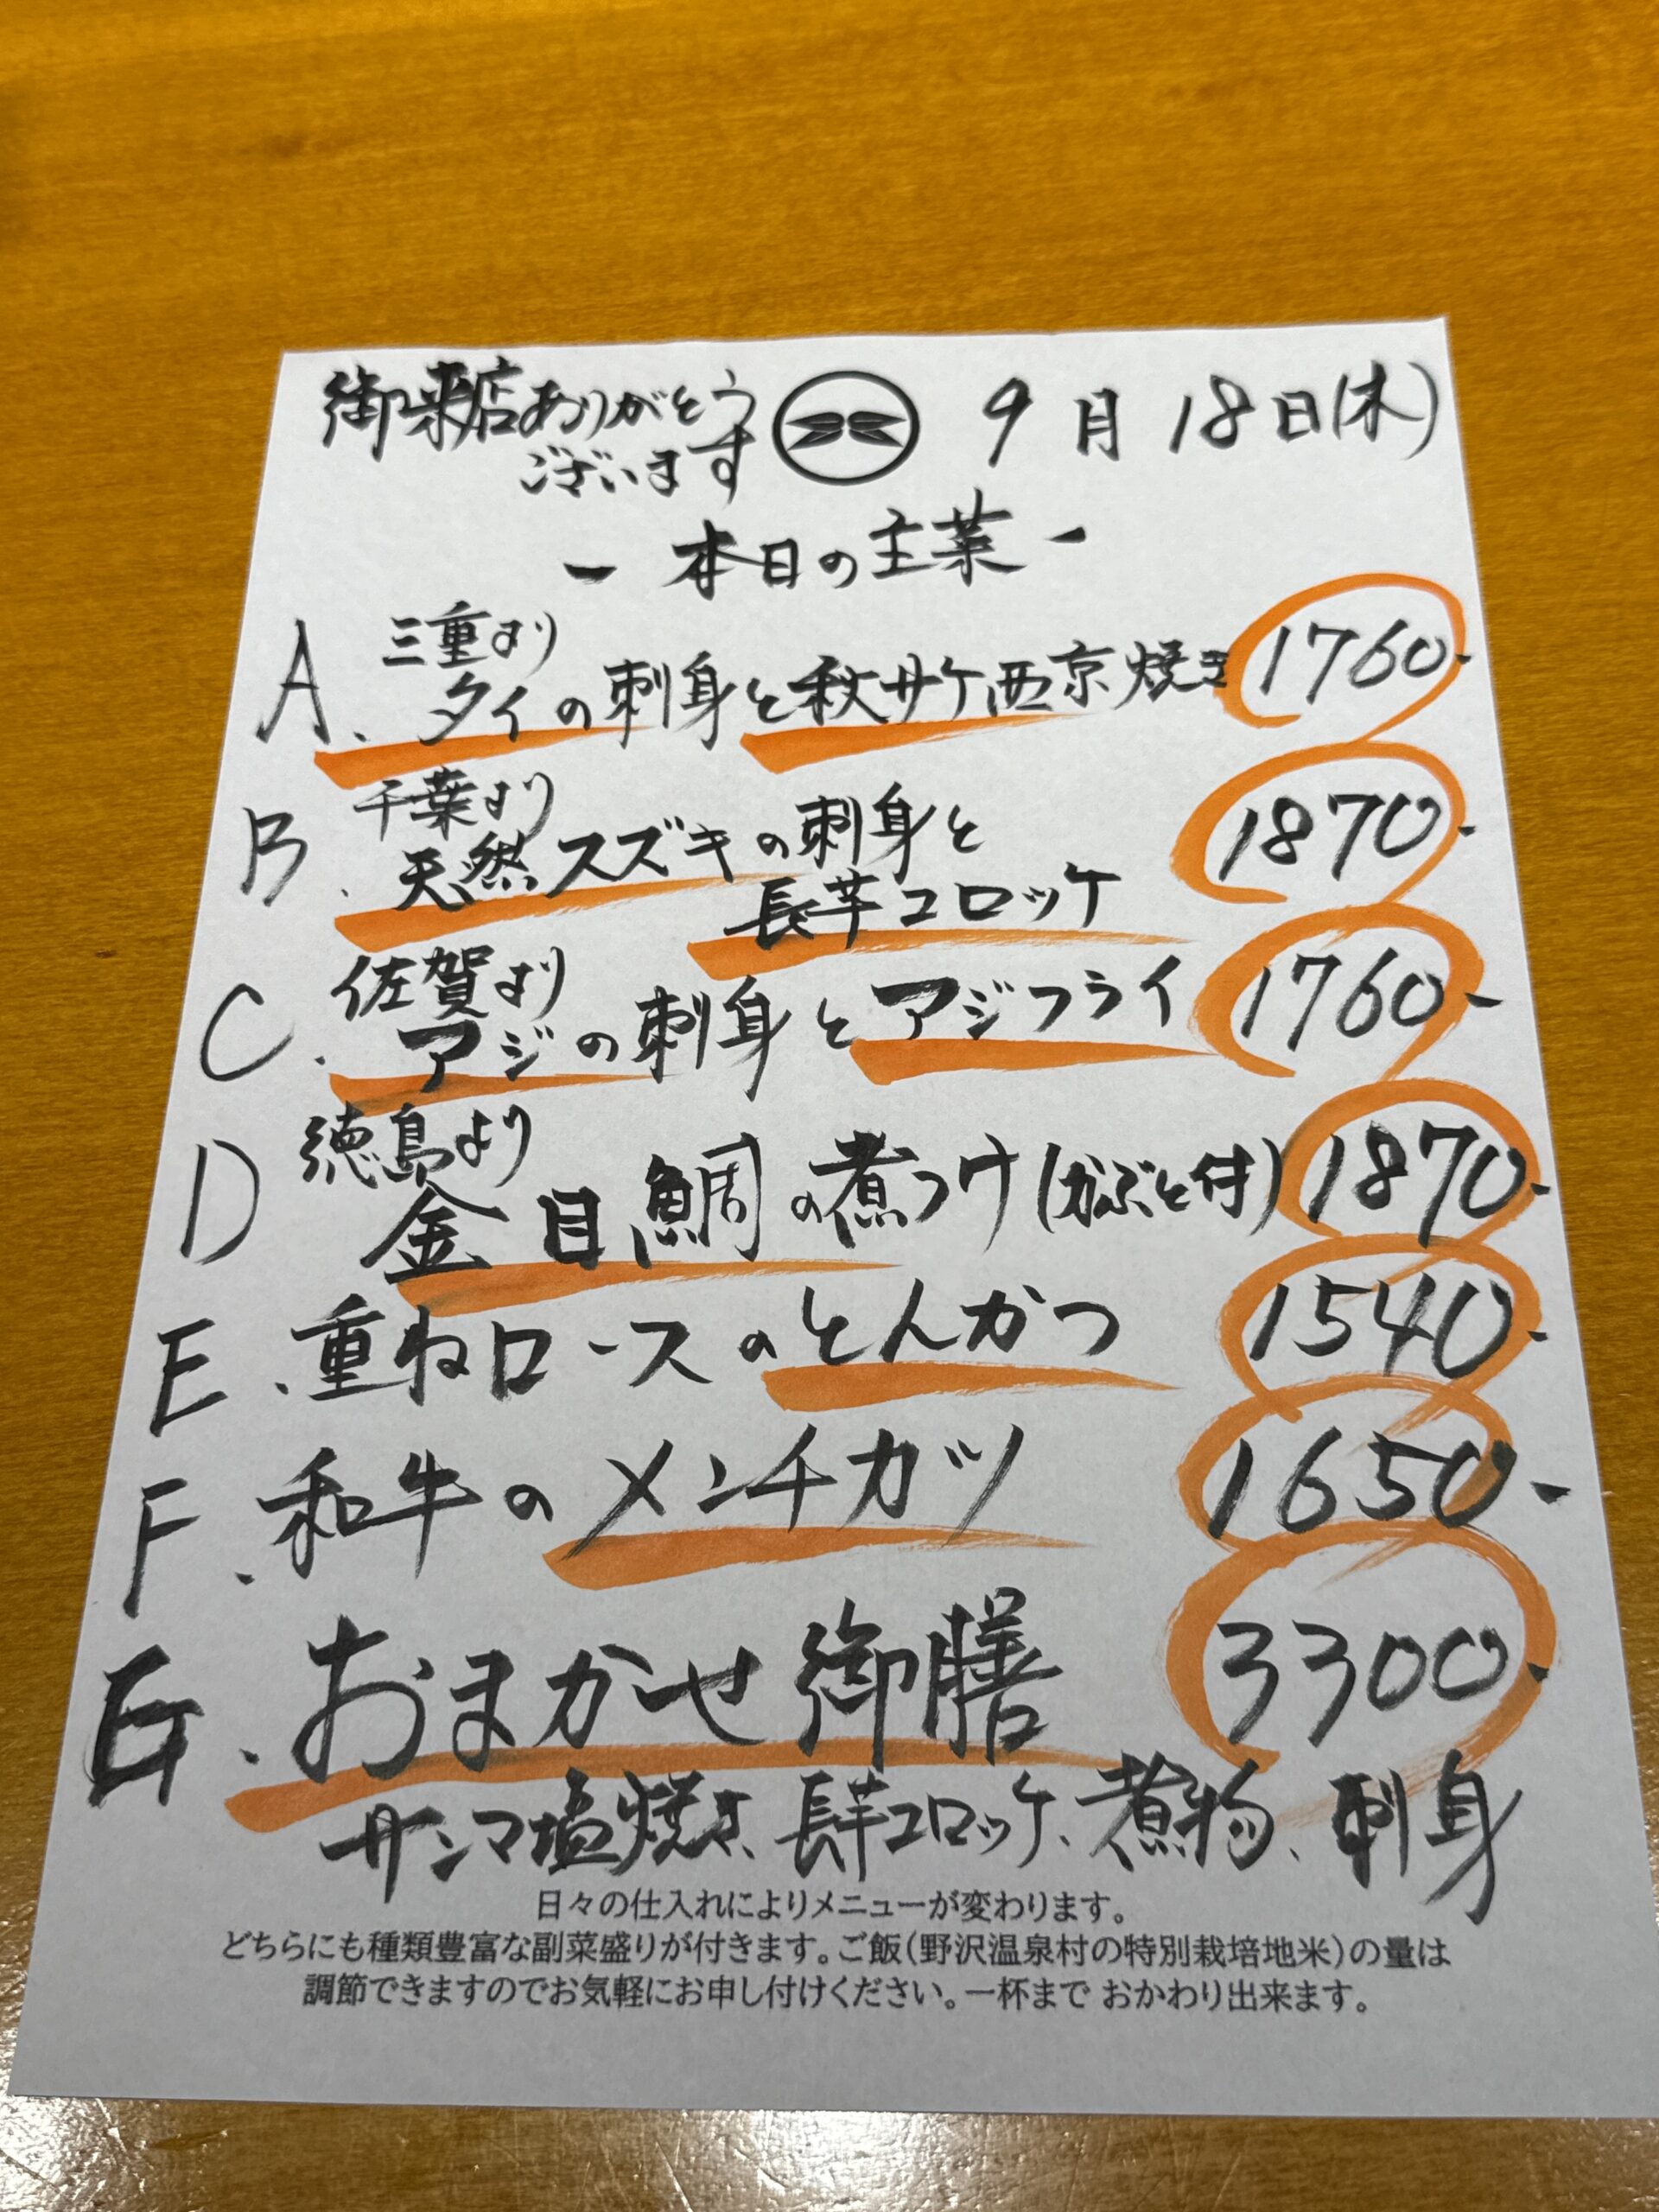 御来店ありがとう
ございます
9月18日(木)
- 本日の主菜 -
A. 三重より
タイの刺身と秋サケ西京焼き 1760-
B. 千葉より
天然スズキの刺身と 1870-
長芋コロッケ
C. 佐賀より
アジの刺身とアジフライ 1760-
D 徳島より
金目鯛の煮つけ(かぶと付) 1870-
E. 重ねロースのとんかつ 1540-
F. 和牛のメンチカツ 1650-
G. おまかせ御膳 3300-
サンマ塩焼き、長芋コロッケ、煮物、刺身
日々の仕入れによりメニューが変わります。
どちらにも種類豊富な副菜盛りが付きます。ご飯(野沢温泉村の特別栽培地米)の量は
調節できますのでお気軽にお申し付けください。一杯まで おかわり出来ます。